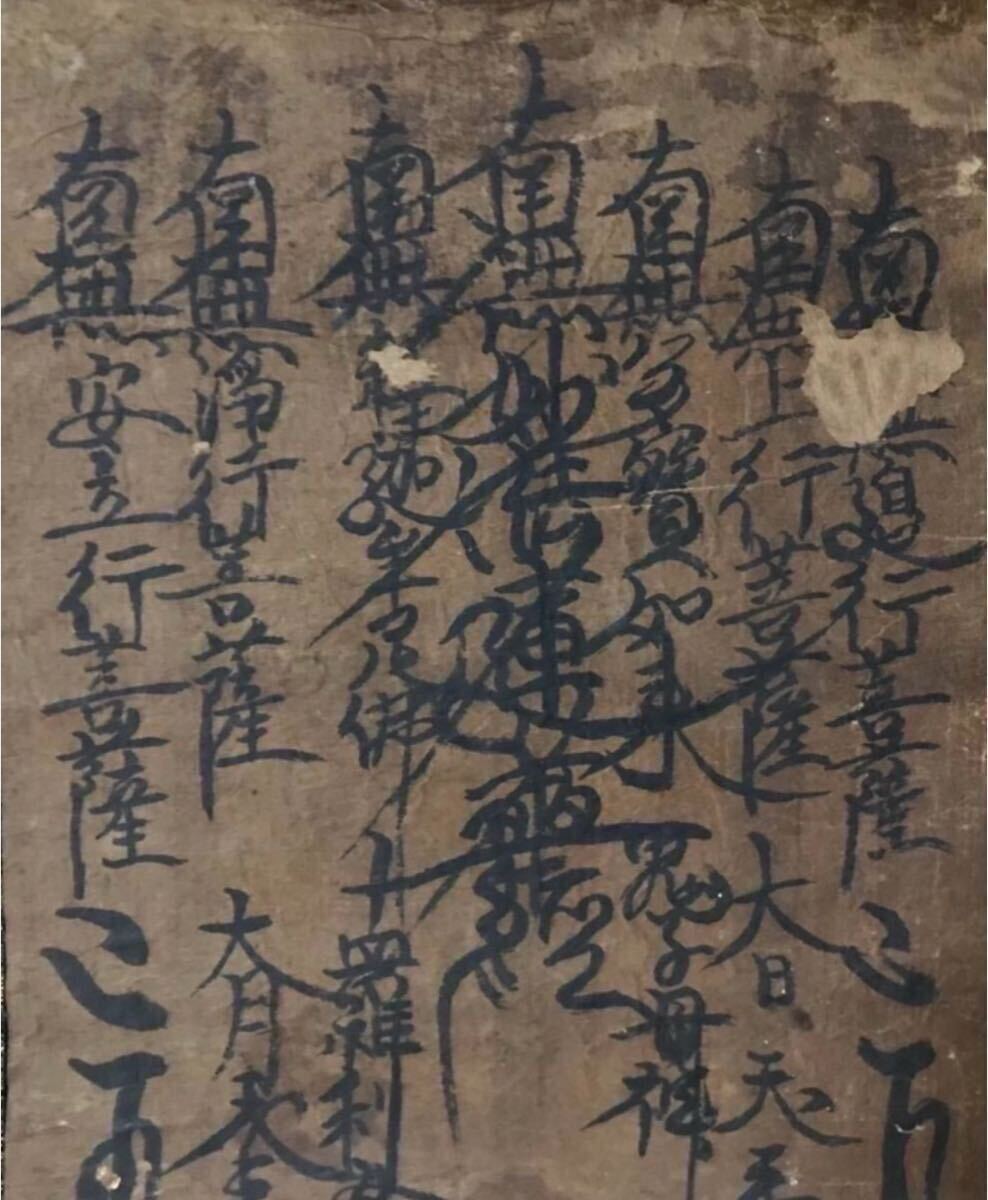 南無邊行菩薩
南無上行菩薩
大日天王
南無多寶如来
鬼子母神
南無妙法蓮華經
南無釋迦牟尼佛
十羅刹女
南無淨行菩薩
大月天王
南無安立行菩薩